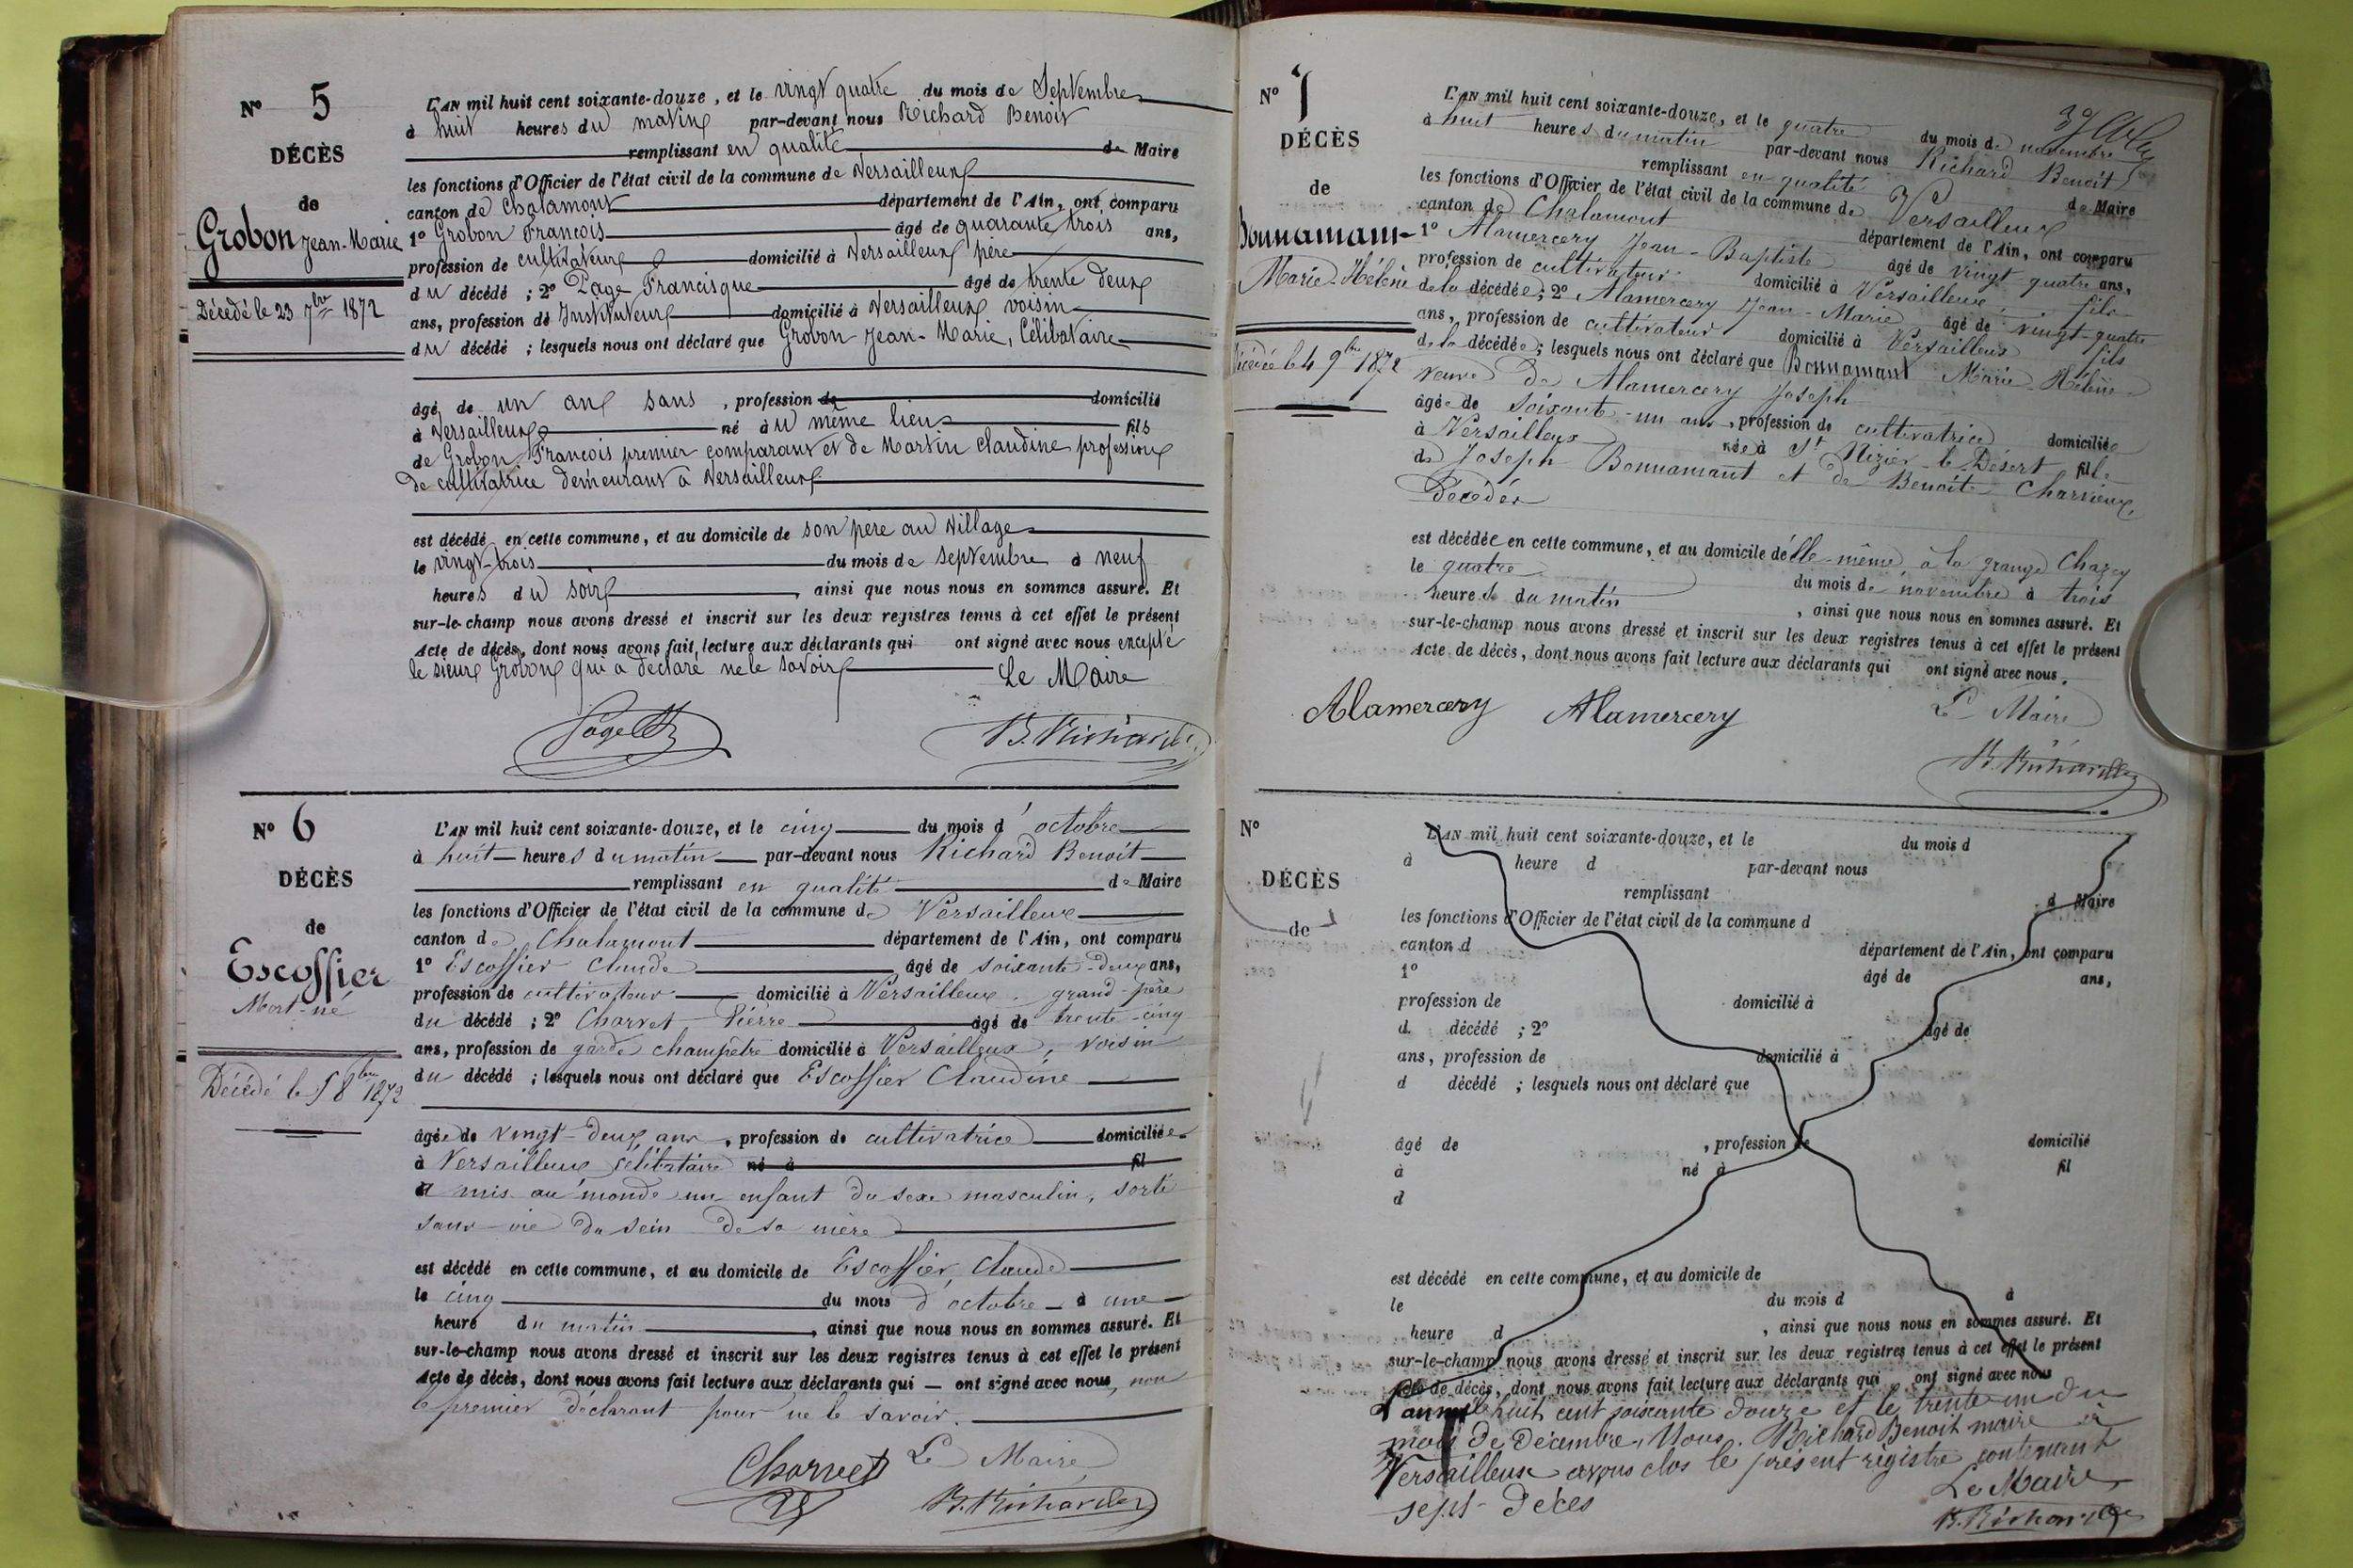 N° 5
DÉCÈS
de
Grobon Jean-Marie
Décédé le 23 7bre 1872
L'AN mil huit cent soixante-douze, et le vingt quatre du mois de Septembre
à huit heures du matin par-devant nous Richard Benoit
remplissant en qualité de Maire
les fonctions d'Officier de l'état civil de la commune de Versailleux
canton de Chalamont département de l'Ain, ont comparu
1° Grobon François âgé de quarante trois ans,
profession de cultivateur domicilié à Versailleux père
du décédé ; 2° Page Francisque âgé de trente deux
ans, profession de Instituteur domicilié à Versailleux voisin
du décédé ; lesquels nous ont déclaré que Grobon Jean-Marie, Célibataire
âgé de un an sans , profession de domicilié
à Versailleux né au même lieu fils
de Grobon François premier comparant et de Martin Claudine profession
de cultivatrice demeurant à Versailleux
est décédé en cette commune, et au domicile de son père au village
le vingt-trois du mois de septembre à neuf
heures du soir , ainsi que nous nous en sommes assuré. Et
sur-le-champ nous avons dressé et inscrit sur les deux registres tenus à cet effet le présent
Acte de décès, dont nous avons fait lecture aux déclarants qui ont signé avec nous excepté
le sieur Grobon qui a déclaré ne le savoir
Le Maire
Page B. Richard
N° 6
DÉCÈS
de
Escoffier
Mort-né
Décédé le 5 8bre 1872
L'AN mil huit cent soixante-douze, et le cinq du mois d'octobre
à huit heures du matin par-devant nous Richard Benoit
remplissant en qualité de Maire
les fonctions d'Officier de l'état civil de la commune de Versailleux
canton de Chalamont département de l'Ain, ont comparu
1° Escoffier Claude âgé de soixante-deux ans,
profession de cultivateur domicilié à Versailleux, grand-père
du décédé ; 2° Charvet Pierre âgé de trente-cinq
ans, profession de garde champêtre domicilié à Versailleux, voisin
du décédé ; lesquels nous ont déclaré que Escoffier Claudine
âgée de vingt-deux ans , profession de cultivatrice domiciliée
à Versailleux célibataire né à fil
a mis au monde un enfant du sexe masculin, sorti
sans vie du sein de sa mère
est décédé en cette commune, et au domicile de Escoffier Claude
le cinq du mois d'octobre à une
heure du matin , ainsi que nous nous en sommes assuré. Et
sur-le-champ nous avons dressé et inscrit sur les deux registres tenus à cet effet le présent
Acte de décès, dont nous avons fait lecture aux déclarants qui ont signé avec nous, non
le premier déclarant pour ne le savoir.
Charvet Le Maire
B. Richard
N° 7
DÉCÈS
de
Bonnamant
Marie-Hélène
Décédée le 4 9bre 1872
L'AN mil huit cent soixante-douze, et le quatre du mois de novembre
à huit heures du matin par-devant nous Richard Benoit
remplissant en qualité de Maire
les fonctions d'Officier de l'état civil de la commune de Versailleux
canton de Chalamont département de l'Ain, ont comparu
1° Alamercery Jean-Baptiste âgé de vingt quatre ans,
profession de cultivateur domicilié à Versailleux fils
de la décédée ; 2° Alamercery Jean-Marie âgé de vingt-quatre
ans, profession de cultivateur domicilié à Versailleux fils
de la décédée ; lesquels nous ont déclaré que Bonnamant Marie Hélène
veuve de Alamercery Joseph
âgée de soixante-un ans, profession de cultivatrice domiciliée
à Versailleux née à St Nizier-le-Désert fille
de Joseph Bonnamant et de Benoite Charvieux
Décédés
est décédée en cette commune, et au domicile d'elle-même à la grange Chazey
le quatre du mois de novembre à trois
heures du matin , ainsi que nous nous en sommes assuré. Et
sur-le-champ nous avons dressé et inscrit sur les deux registres tenus à cet effet le présent
Acte de décès, dont nous avons fait lecture aux déclarants qui ont signé avec nous.
Alamercery Alamercery Le Maire
B. Richard
N°
DÉCÈS
de
L'AN mil huit cent soixante-douze, et le du mois d
à heure d par-devant nous
remplissant d Maire
les fonctions d'Officier de l'état civil de la commune d
canton d département de l'Ain, ont comparu
1° âgé de ans,
profession de domicilié à
d décédé ; 2° âgé de
ans, profession de domicilié à
d décédé ; lesquels nous ont déclaré que
âgé de , profession de domicilié
à né à fil
d
est décédé en cette commune, et au domicile de
le du mois d à
heure d , ainsi que nous nous en sommes assuré. Et
sur-le-champ nous avons dressé et inscrit sur les deux registres tenus à cet effet le présent
Acte de décès, dont nous avons fait lecture aux déclarants qui ont signé avec nous
L'an mil huit cent soixante douze et le trente un du
mois de Décembre, Nous, Richard Benoit maire de
Versailleux avons clos le présent registre contenant
sept décès
Le Maire
B. Richard